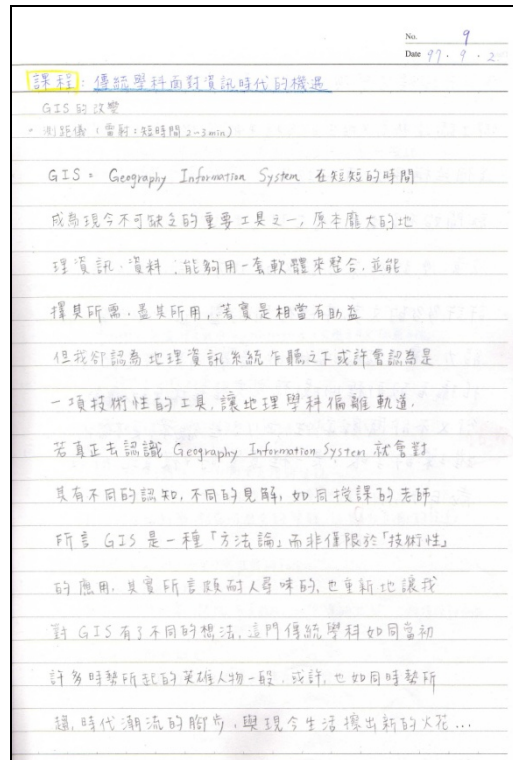 No. 9
Date 97.9.2
課程：傳統學科面對資訊時代的機遇
GIS的改變
。測距儀（雷射：短時間2~3min）
GIS = Geography Information System 在短短的時間
成為現今不可缺乏的重要工具之一，原本龐大的地
理資訊、資料；能夠用一套軟體來整合，並能
擇其所需，盡其所用，著實是相當有助益
但我卻認為地理資訊系統乍聽之下或許會認為是
一項技術性的工具，讓地理學科偏離軌道，
若真正去認識 Geography Information System 就會對
其有不同的認知，不同的見解，如同授課的老師
所言 GIS 是一種「方法論」而非僅限於「技術性」
的應用，其實所言頗耐人尋味的，也重新地讓我
對 GIS 有了不同的想法，這門傳統學科如同當初
許多時勢所起的英雄人物一般，或許，也如同時勢所
趨，時代潮流的腳步，與現今生活擦出新的火花…